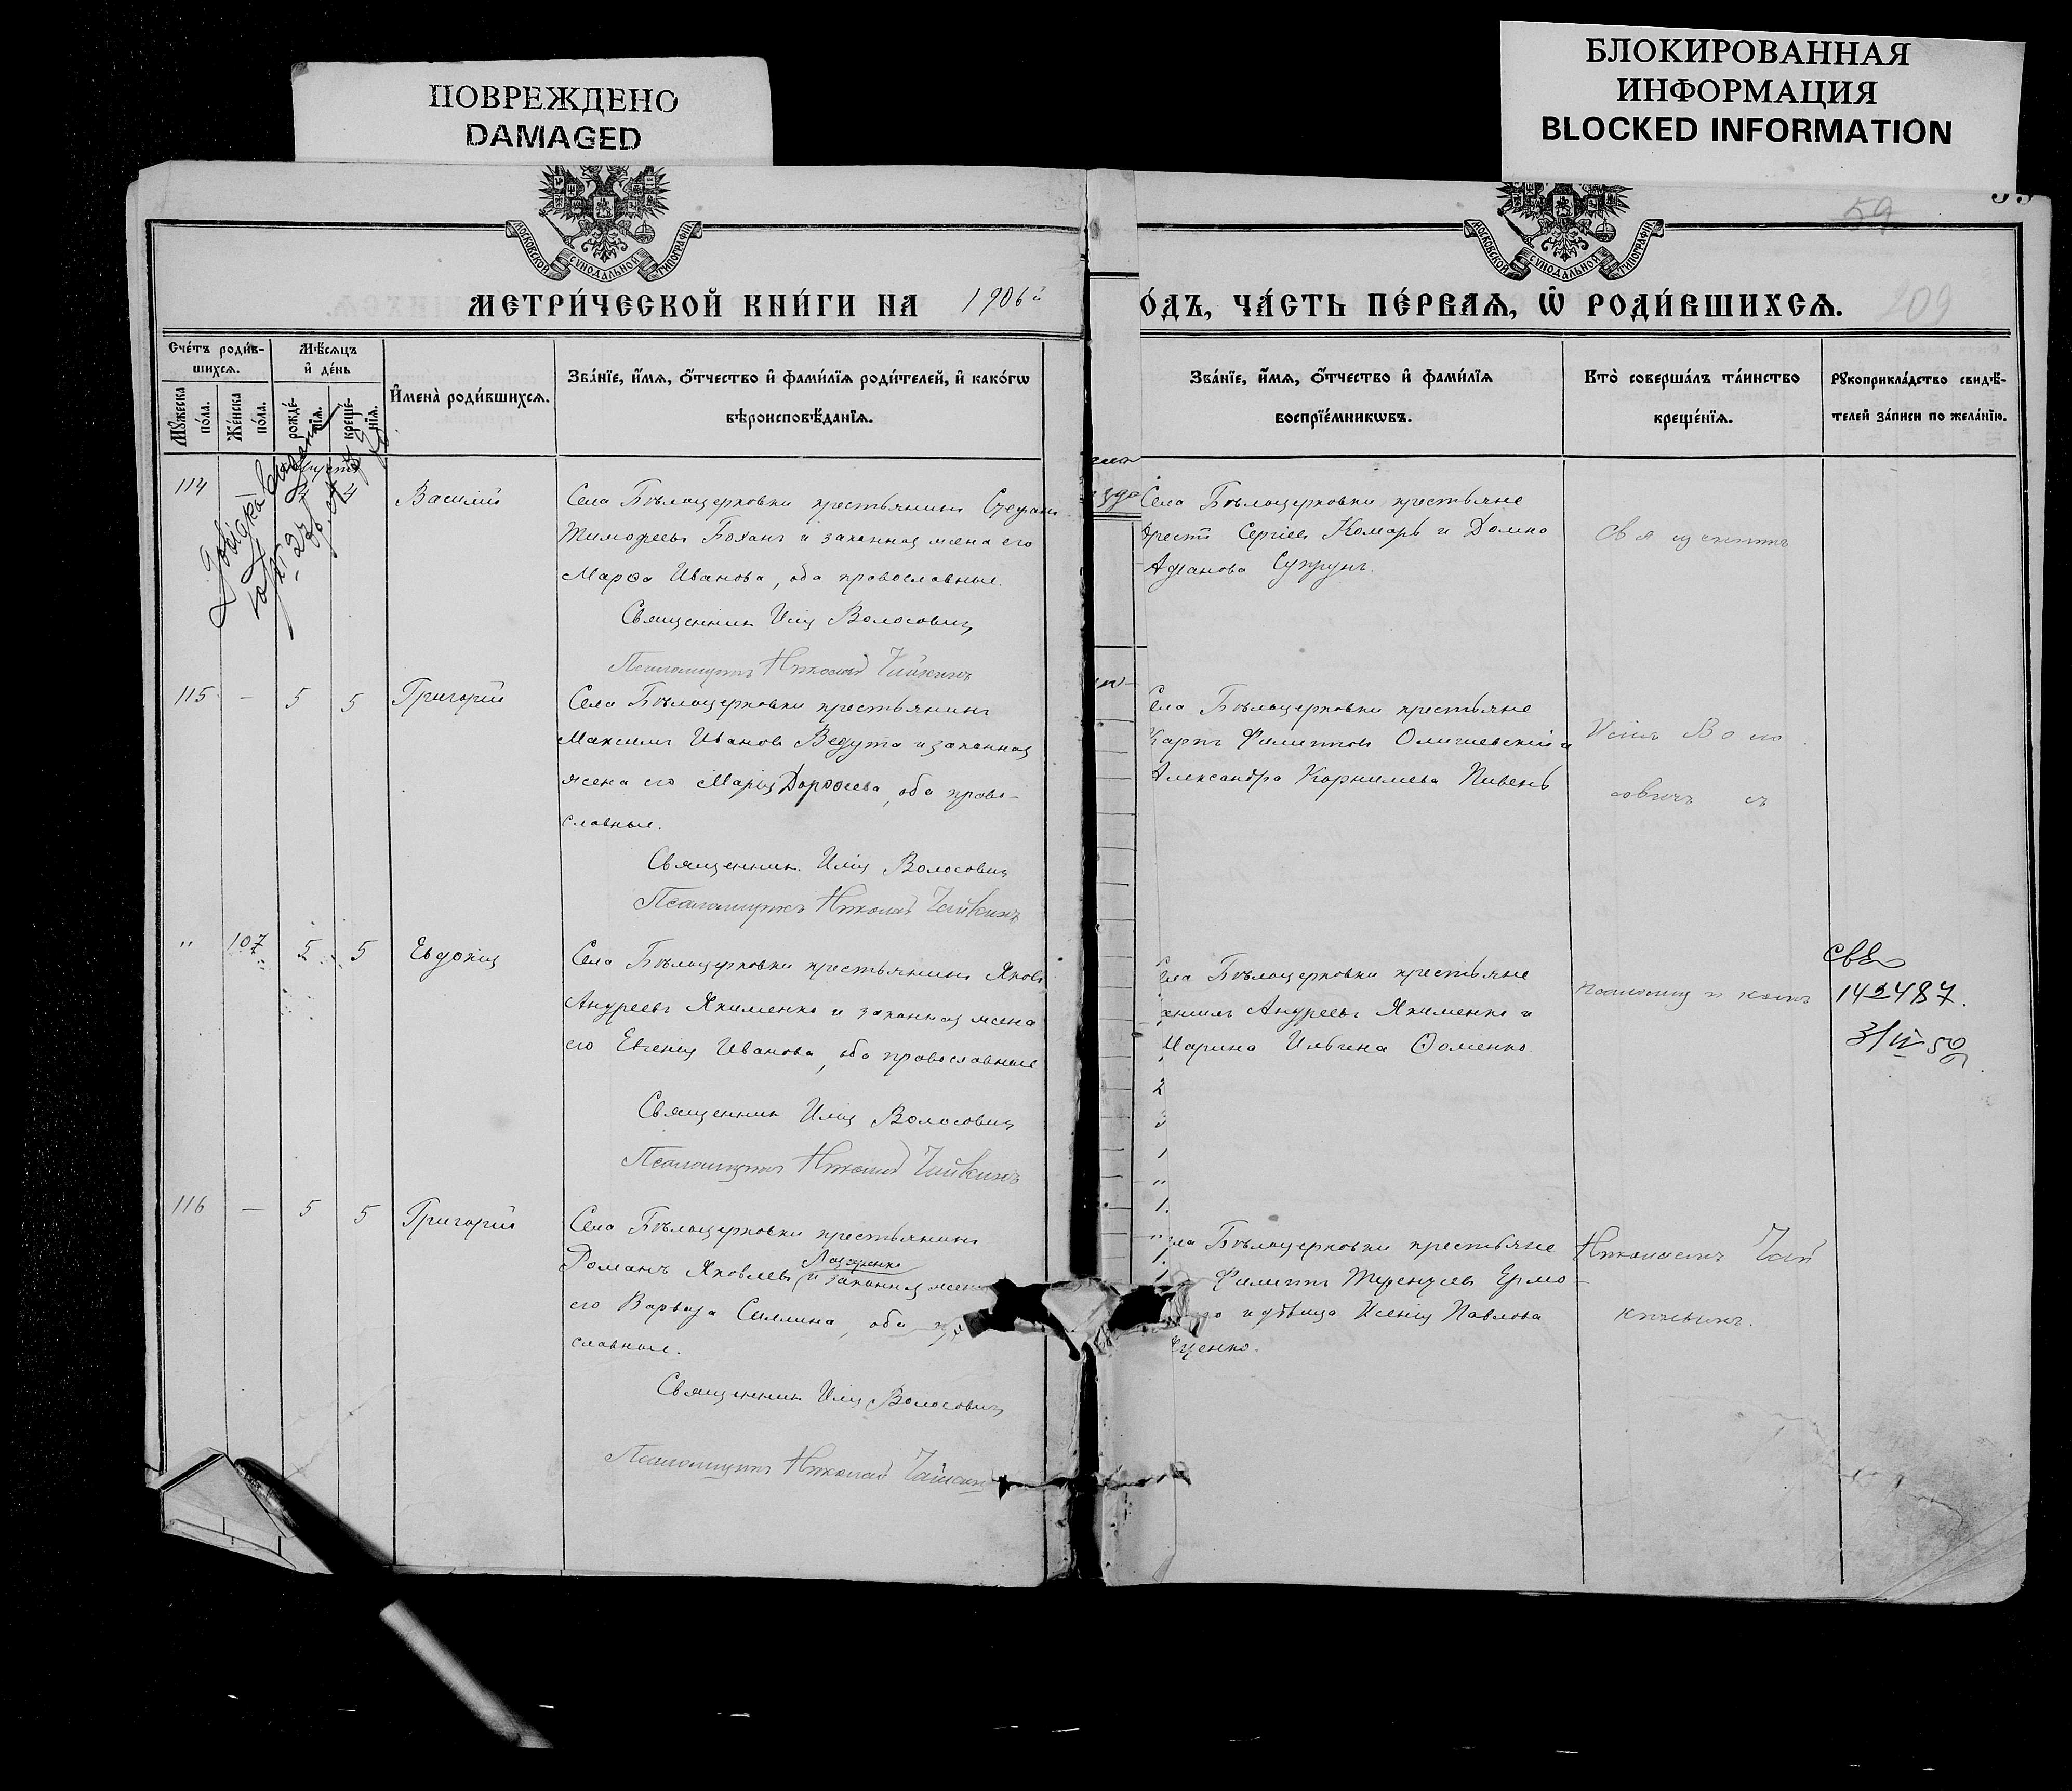 ПОВРЕЖДЕНО
DAMAGED
БЛОКИРОВАННАЯ
ИНФОРМАЦИЯ
BLOCKED INFORMATION
МОСКОВСКОЙ СУНОДАЛЬНОЙ ТИПОГРАФІИ
МОСКОВСКОЙ СУНОДАЛЬНОЙ ТИПОГРАФІИ
59
МЕТРИ́ЧЕСКОЙ КНИ́ГИ НА 1906й
ОДЪ, ЧА́СТЬ ПЕ́РВАѦ, Ѡ РОДИ́ВШИХСѦ.
209
Сче́тъ роди́в-
шихсѧ.
Мꙋ́жеска по́ла.
Же́нска по́ла.
Мѣ́сѧцъ
и҆ де́нь
рожде́-
нїѧ.
креще́-
нїѧ.
И҆мена̀ роди́вшихсѧ.
Зва́нїе, и҆́мѧ, ѻ҆́тчество и҆ фами́лїѧ роди́телей, и҆ како́гѡ
вѣроисповѣ́данїѧ.
Зва́нїе, и҆́мѧ, ѻ҆́тчество и҆ фами́лїѧ
воспрїе́мникѡвъ.
Кто̀ соверша́лъ та́инство
креще́нїѧ.
Рꙋкоприкла́дство свидѣ́-
телей за́писи по жела́нїю.
114
4
Василій
Села Бѣлоцерковки крестьянинъ Стефанъ
Тимофеевъ Бохан и законная жена его
Марѳа Иванова, оба православные.
Священникъ Илія Волосовичъ
Псаломщикъ Николай Чайкинъ
Села Бѣлоцерковки крестьяне
Сергіевъ Комаръ и Домна
Супрунъ.
Священникъ
115 – 5 5 Григорій
Села Бѣлоцерковки крестьянинъ
Максимъ Ивановъ Ведута и законная
жена его Марія Дороѳеева, оба право-
славные.
Священникъ Илія Волосовичъ
Псаломщикъ Николай Чайкинъ
Села Бѣлоцерковки крестьяне
Карпъ Филипповъ Олишевскій и
Александра Корнилева Пивень
Илія Воло
совичъ съ
" 107 5 5 Евдокія
Села Бѣлоцерковки крестьянинъ Яковъ
Андреевъ Якименко и законная жена
его Евгенія Иванова, оба православные
Священникъ Илія Волосовичъ
Псаломщикъ Николай Чайкинъ
ела Бѣлоцерковки крестьяне
Андреевъ Якименко и
Марина Ильина Ѳоменко
2
3
1
"
1.
псаломщикомъ
142487.
3/IV 50
116 – 5 5 Григорій
Села Бѣлоцерковки крестьянинъ
Романъ Яковлевъ Лазаренко и законная жена
его Варвара Силина, оба
славные.
Священникъ Илія Волосовичъ
Псаломщикъ Николай Чайкин
ла Бѣлоцерковки крестьяне
Филиппъ Терентіевъ Ермо-
и дѣвица Ксенія Павлова
щенко.
Николаемъ Чай
кинымъ.